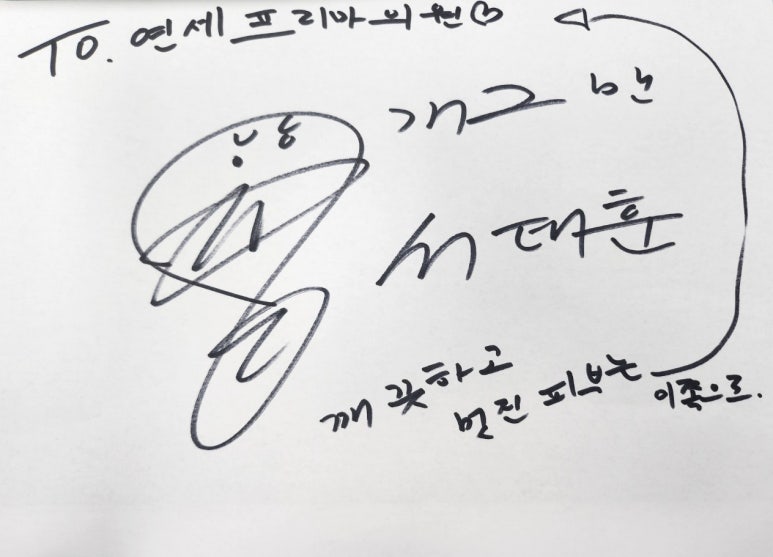 TO. 연세프리마의원♡
개그맨
서태훈
깨끗하고
멋진 피부는 이쪽으로.